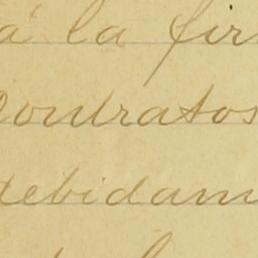 á la fir
Contratos
debidam